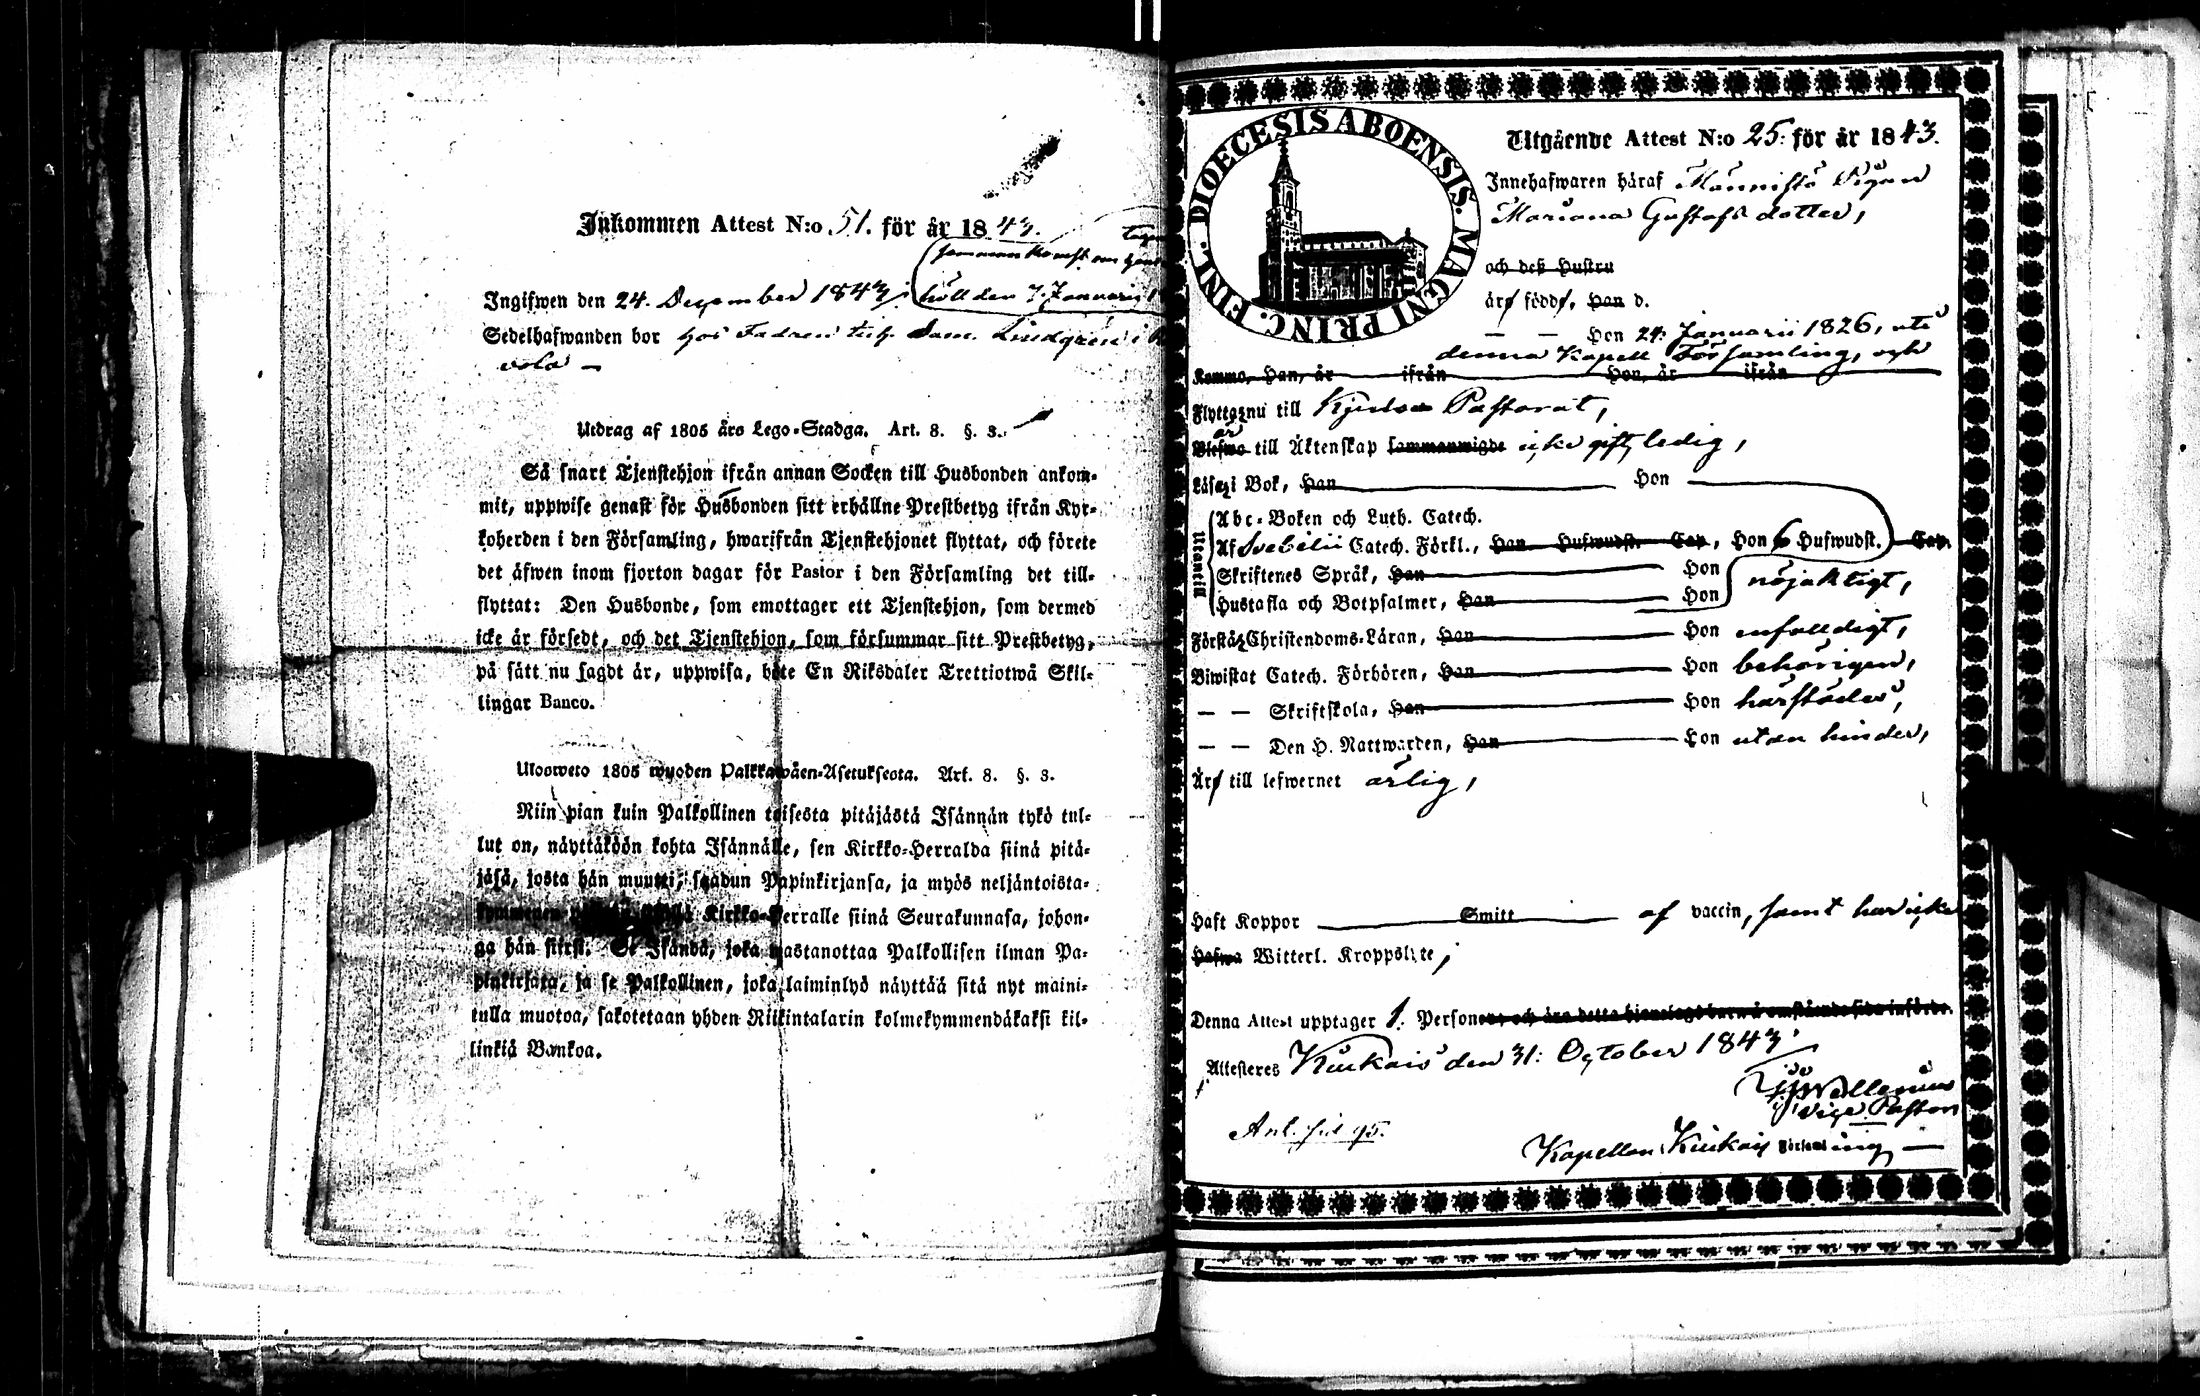 Inkommen Attest N:o 51. för år 1843.
Ingifwen den 24. December 1843,
höll den 7. Januarii
Sedelhafwanden bor hos Fadren Sam. Lindgren i
vola —
Utdrag af 1805 års Lego-Stadga. Art. 8. §. 3.
Så snart Tjenstehjon ifrån annan Socken till Husbonden ankom-
mit, uppwise genast för Husbonden sitt erhållne Prestbetyg ifrån Kyr-
koherden i den Församling, hwarifrån Tjenstehjonet flyttat, och förete
det äfwen inom fjorton dagar för Pastor i den Församling det till-
flyttat: Den Husbonde, som emottager ett Tjenstehjon, som dermed
icke är försedt, och det Tjenstehjon, som försummar sitt Prestbetyg,
på sätt nu sagdt är, uppwisa, böte En Riksdaler Trettiotwå Skil-
lingar Banco.
Uloosweto 1805 wuoden Palkkawäen-Asetuksesta. Art. 8. §. 3.
Niin pian kuin Palkollinen toisesta pitäjästä Isännän tykö tul-
lut on, näyttäköön kohta Isännälle, sen Kirkko-Herralda siinä pitä-
jäsä, josta hän muutti, saadun Papinkirjansa, ja myös neljäntoista-
kymmenen Kirkko-Herralle siinä Seurakunnasa, johon-
ga hän siirsi. Se Isändä, joka wastanottaa Palkollisen ilman Pa-
pinkirjata, ja se Palkollinen, joka laiminlyö näyttää sitä nyt maini-
tulla muotoa, sakotetaan yhden Riikintalarin kolmekymmendäkaksi kil-
linkiä Bankoa.
DIOECESIS ABOENSIS. MAGNI PRINC. FINL.
Utgående Attest N:o 25: för år 1843.
Innehafwaren häraf Männistö Pigan
Mariana Gustafs dotter,
och deß Hustru
äro födde, Han d.
— — Hon 24. Januarii 1826, uti
denna Kapell Församling, och
Komma, Han, är ifrån Hon, är ifrån
Flytta nu till Kjulo Pastorat,
är
Blefwo till Äktenskap sammanwigde icke gift, ledig,
Läsa i Bok, Han Hon
Utantill
Abc-Boken och Luth. Catech.
Af Svebilii Catech. Förkl., Han Hufwudst. Cap, Hon 6 Hufwudst. Cap.
Skriftenes Språk, Han Hon nöjaktigt,
Hustafla och Botpsalmer, Han Hon
Förstå Christendoms-Läran, Han Hon enfalldigt,
Biwistat Catech. Förhören, Han Hon behörigen,
— — Skriftskola, Han Hon härstädes,
— — Den H. Nattwarden, Han Hon utan hinder,
Äro till lefwernet ärlig,
Haft Koppor Smitt af vaccin, samt har icke
Hafwa Witterl. Kroppslyte,
Denna Attest upptager 1. Personer, och äro detta hjonelags barn å omstående sida införde.
Attesteres Kiukais den 31: October 1843.
Vice Pastor
Kapellan i Kiukais Församling —